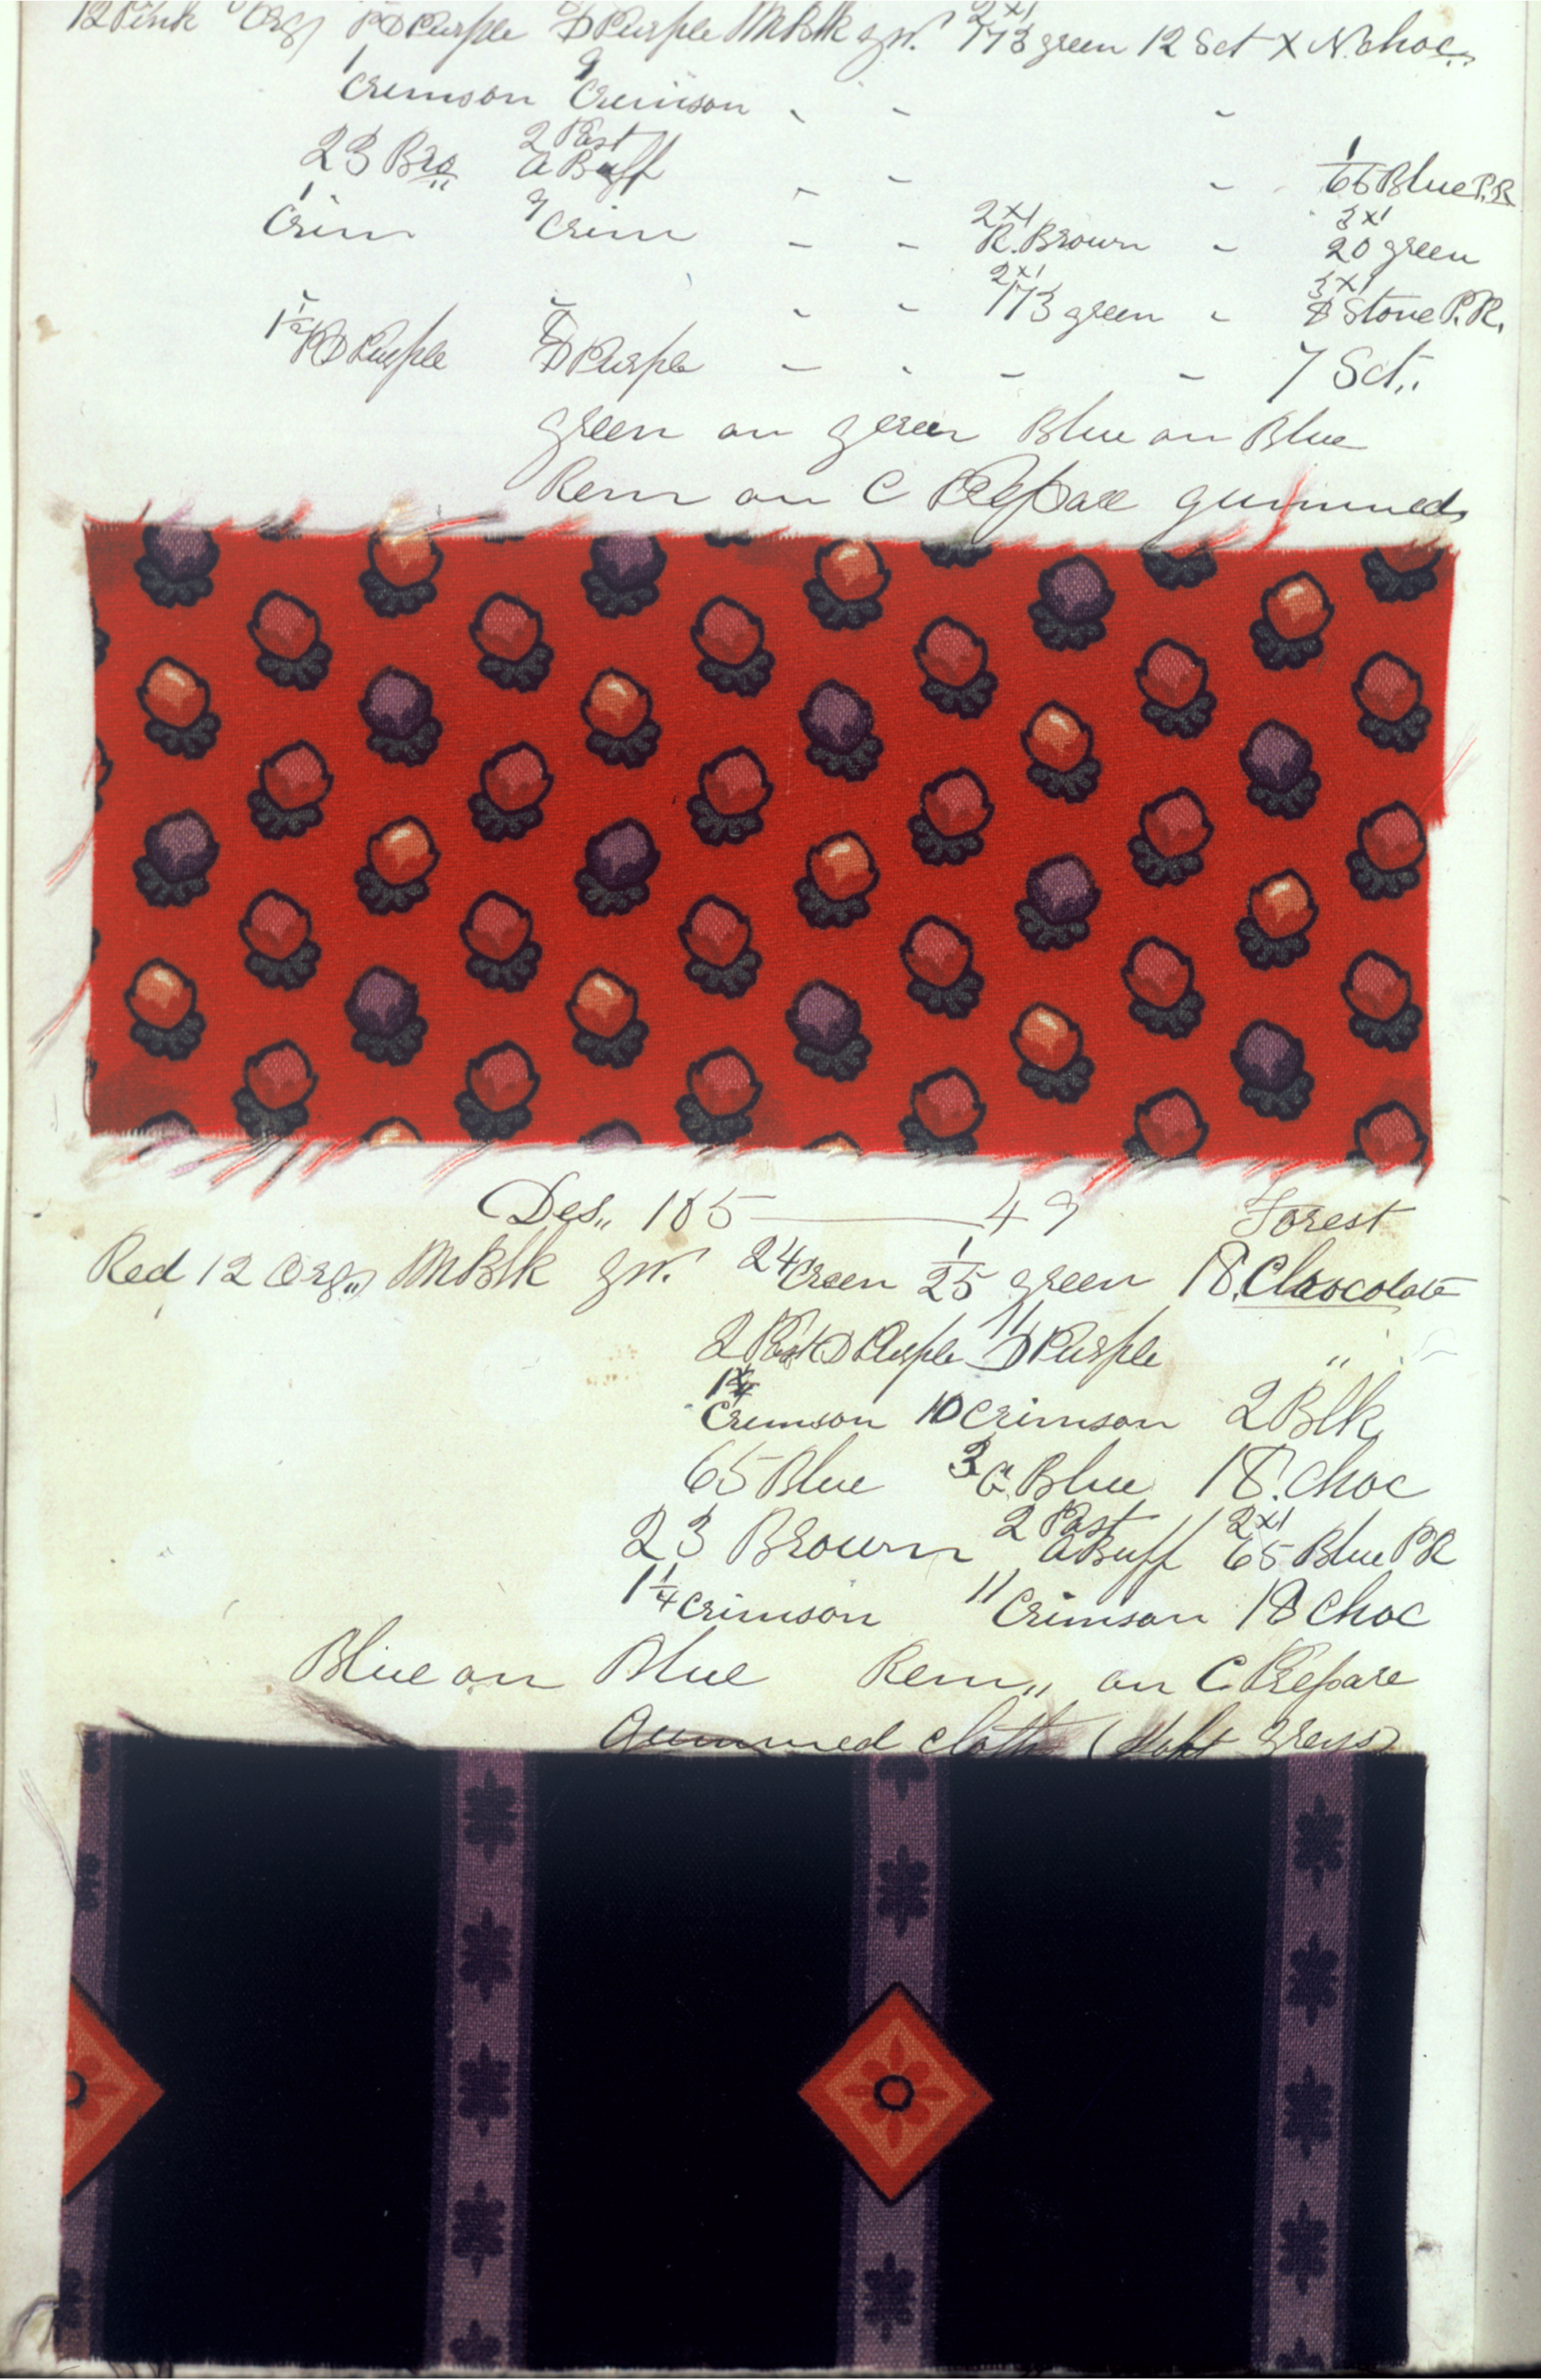 12 Pink Org PD Purple D Purple M Blk gr. 2x1 173 green 12 Sct X N. Choc
1 Crimson 9 Crimson - - -
23 Bro 2 Past a Buff - - - 1/65 Blue P.R
1 Crim 9 Crim - - 2x1 R. Brown - 3x1 20 green
- - 2x1 173 green - 3x1 8 Stone P.R.
1½ PD Purple D Purple - - - - 7 Sct,,
green on green Blue on Blue
Rem on C Prepare gummed
Des,, 165 — 49 Forest
Red 12 Org,, M Blk gr. 24 Green 1/25 green 18. Choocolate
2 Past D Purple 11 D Purple "
Crimson 10 Crimson 2 Blk
65 Blue 3 G. Blue 18. Choc
23 Brown 2 Past a Buff 2x1 65 Blue PR
1¼ Crimson 11 Crimson 18 Choc
Blue on Blue Rem,, on C Prepare
Gummed cloth